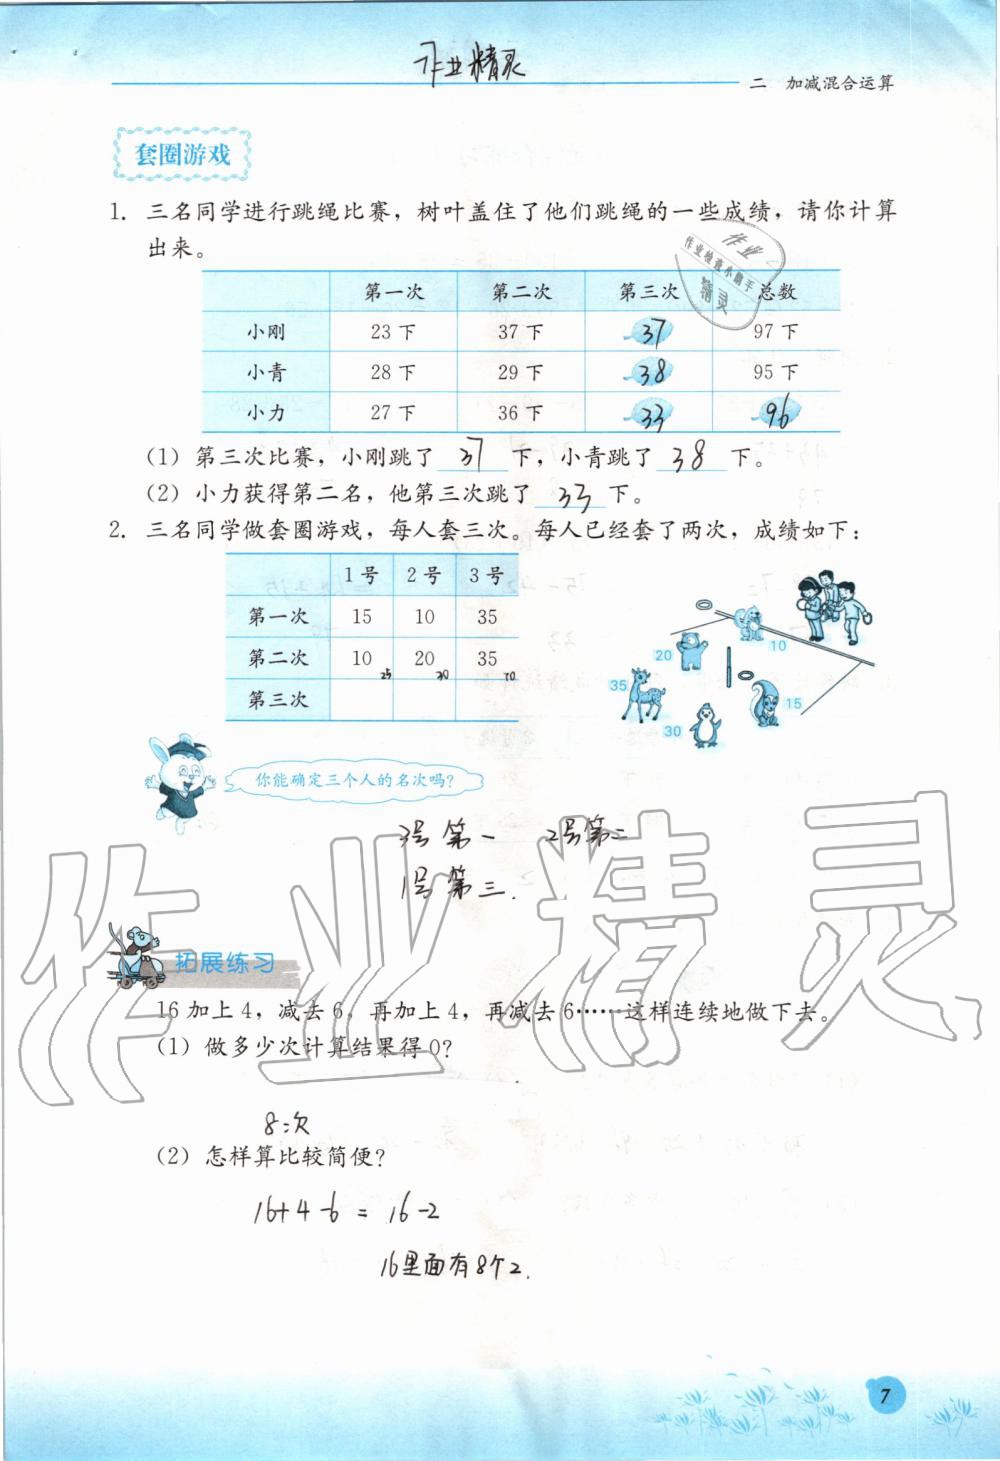 作业精灵
二 加减混合运算
套圈游戏
1. 三名同学进行跳绳比赛，树叶盖住了他们跳绳的一些成绩，请你计算
出来。
作业
作业检查小助手
精灵
第一次 第二次 第三次 总数
小刚 23下 37下 37 97下
小青 28下 29下 38 95下
小力 27下 36下 33 96
(1) 第三次比赛，小刚跳了 37 下，小青跳了 38 下。
(2) 小力获得第二名，他第三次跳了 33 下。
2. 三名同学做套圈游戏，每人套三次。每人已经套了两次，成绩如下：
1号 2号 3号
第一次 15 10 35
第二次 10 20 35
25 30 70
第三次
10
20
35
15
30
你能确定三个人的名次吗？
3号第一 2号第二
1号第三.
作业精灵
拓展练习
16加上4，减去6，再加上4，再减去6……这样连续地做下去。
(1) 做多少次计算结果得0？
8次
(2) 怎样算比较简便？
16+4-6=16-2
16里面有8个2.
7